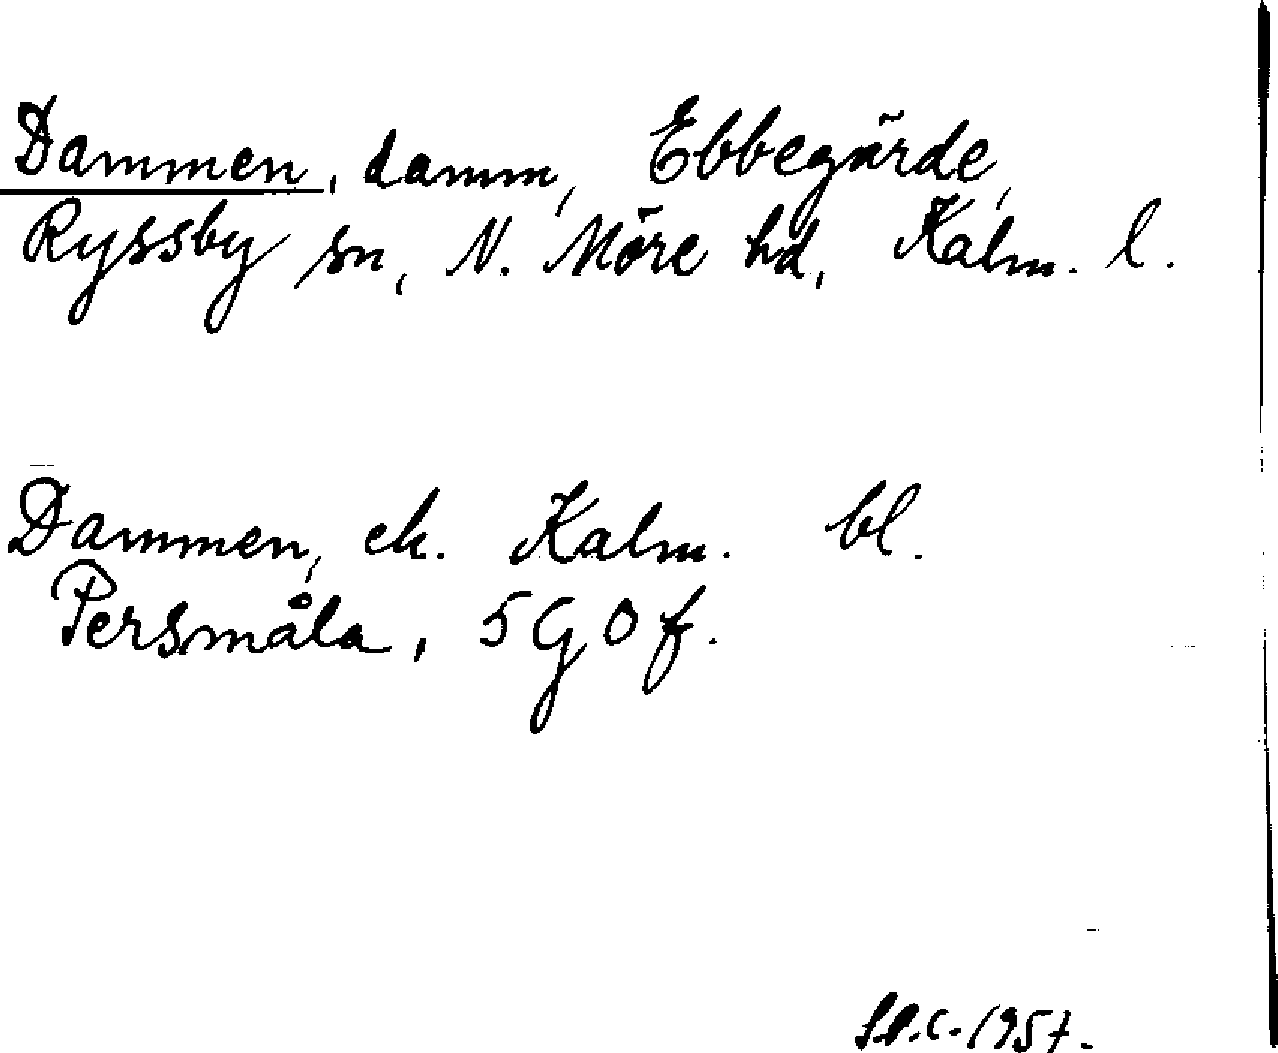 Dammen, damm, Ebbegärde,
Ryssby sn, N. Möre hd, Kalm. l.
Dammen, ek. Kalm. bl.
Persmåla, 5 G 0 f.
1957.